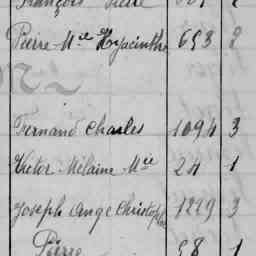 François Pierre
Pierre Mce Hyacinthe 653 2
Fernand Charles 1094 3
Victor Mélaine Mce 24 1
Joseph Ange Christophe 1219 3
Pierre 58 1